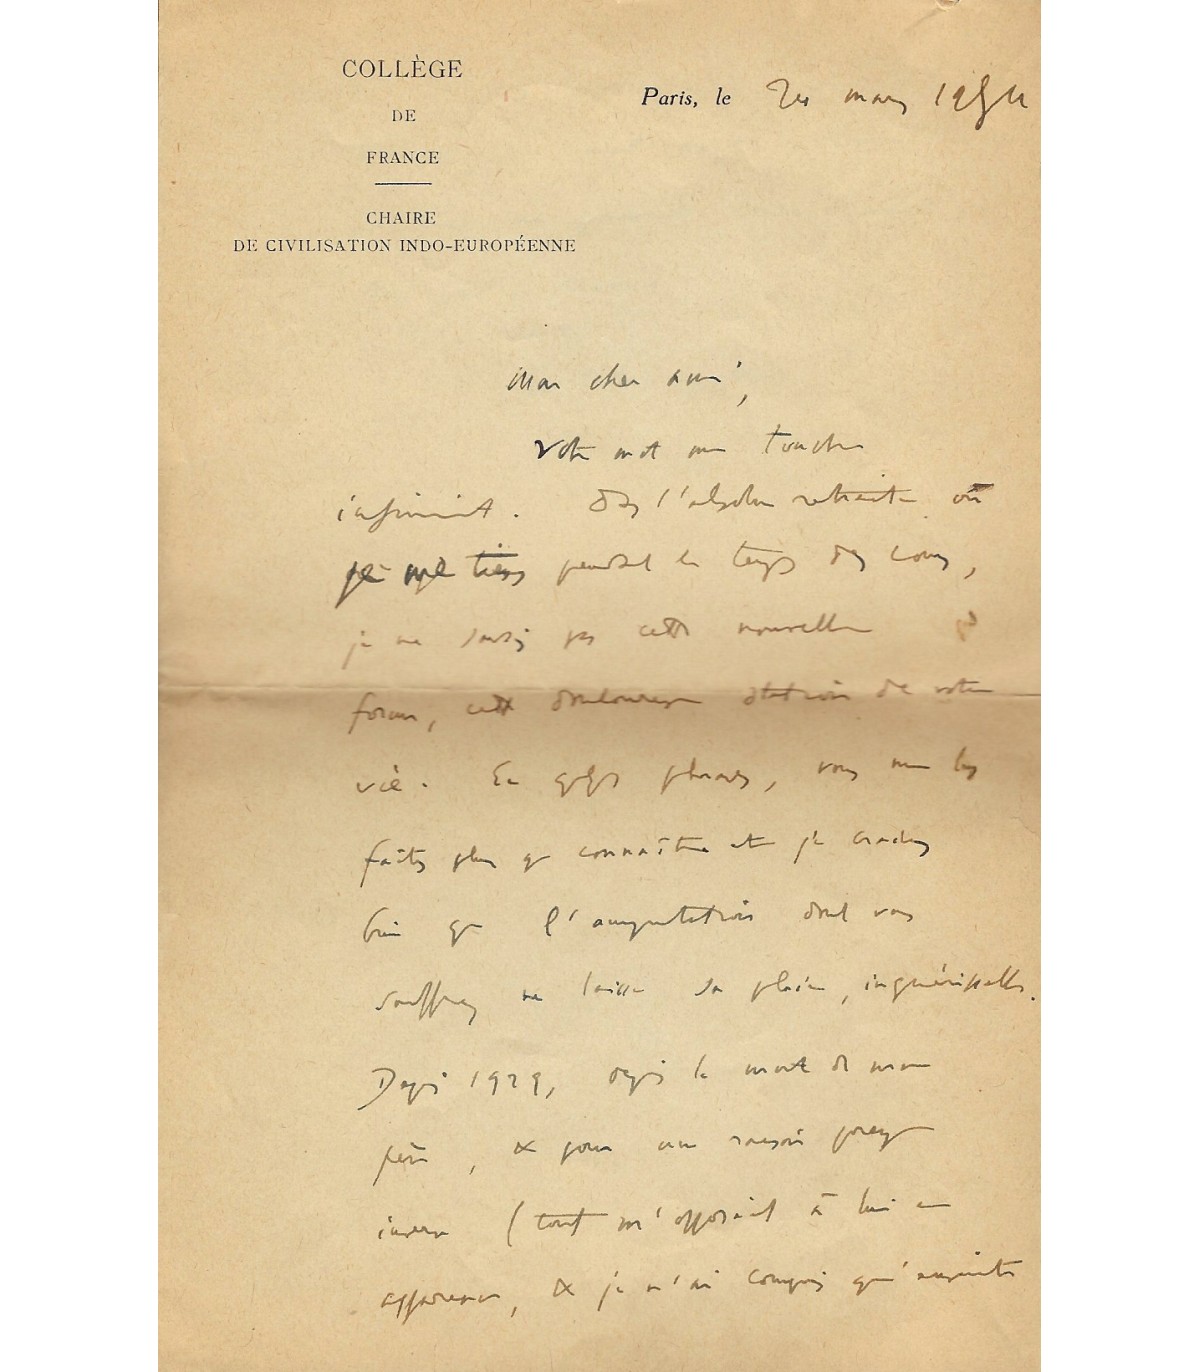 COLLÈGE
DE
FRANCE
CHAIRE
DE CIVILISATION INDO-EUROPÉENNE
Paris, le mars
Mon cher ami,
Votre mot me touche
infiniment. Ds l'absolue retraite où
je me tiens pendant le temps des cours,
je ne savais pas cette nouvelle
forme, cette douloureuse station de votre
vie. En qqs phrases, vous me les
faites plus q connaître et je crains
bien que l'amputation dont vous
souffrez ne laisse sa plaie, inguérissable.
Depuis 1929, depuis la mort de mon
père, & pour une raison presque
inverse (tout m'opposait à lui en
apparence, & je n'ai compris qu'ensuite